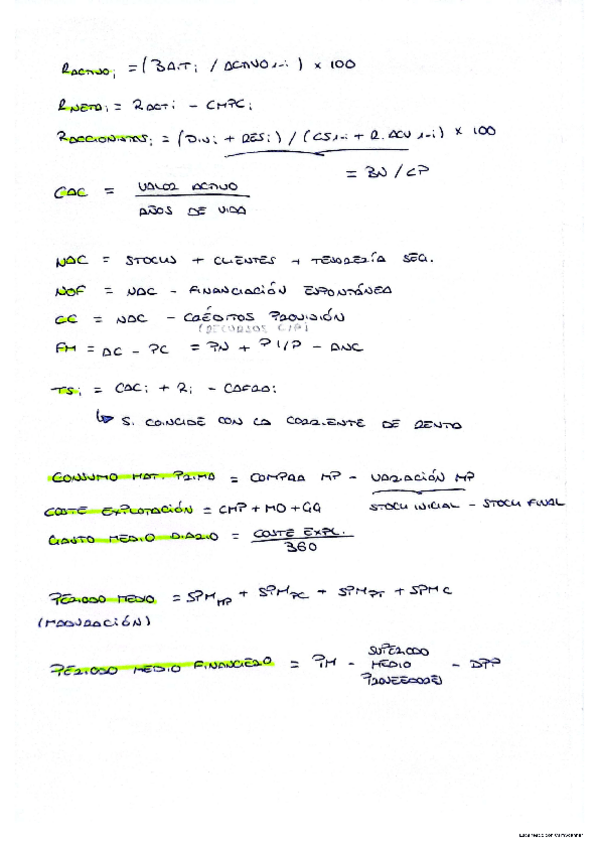 RACTIVO i = (BAIT i / ACTIVO i-1) x 100
RNETA i = RACT i - CMPC i
RACCIONISTAS i = (DIV i + RES i) / (CS i-1 + R. ACU i-1) x 100
= BN / CP
CAC = VALOR ACTIVO / AÑOS DE VIDA
NAC = STOCKS + CLIENTES + TESORERÍA SEG.
NOF = NAC - FINANCIACIÓN ESPONTÁNEA
CC = NAC - CRÉDITOS PROVISIÓN
(RECURSOS C/P)
FM = AC - PC = PN + P l/P - ANC
TS i = CAC i + R i - CAFRA i
↳ Si COINCIDE CON LA CORRIENTE DE RENTA
CONSUMO MAT. PRIMA = COMPRA MP - VARIACIÓN MP
STOCK INICIAL - STOCK FINAL
COSTE EXPLOTACIÓN = CMP + MO + GG
GASTO MEDIO DIARIO = COSTE EXPL. / 360
PERIODO MEDIO = SPM MP + SPM PC + SPM PT + SPM C
(MADURACIÓN)
PERIODO MEDIO FINANCIERO = PM - SUPERIODO MEDIO PROVEEDORES - DPP